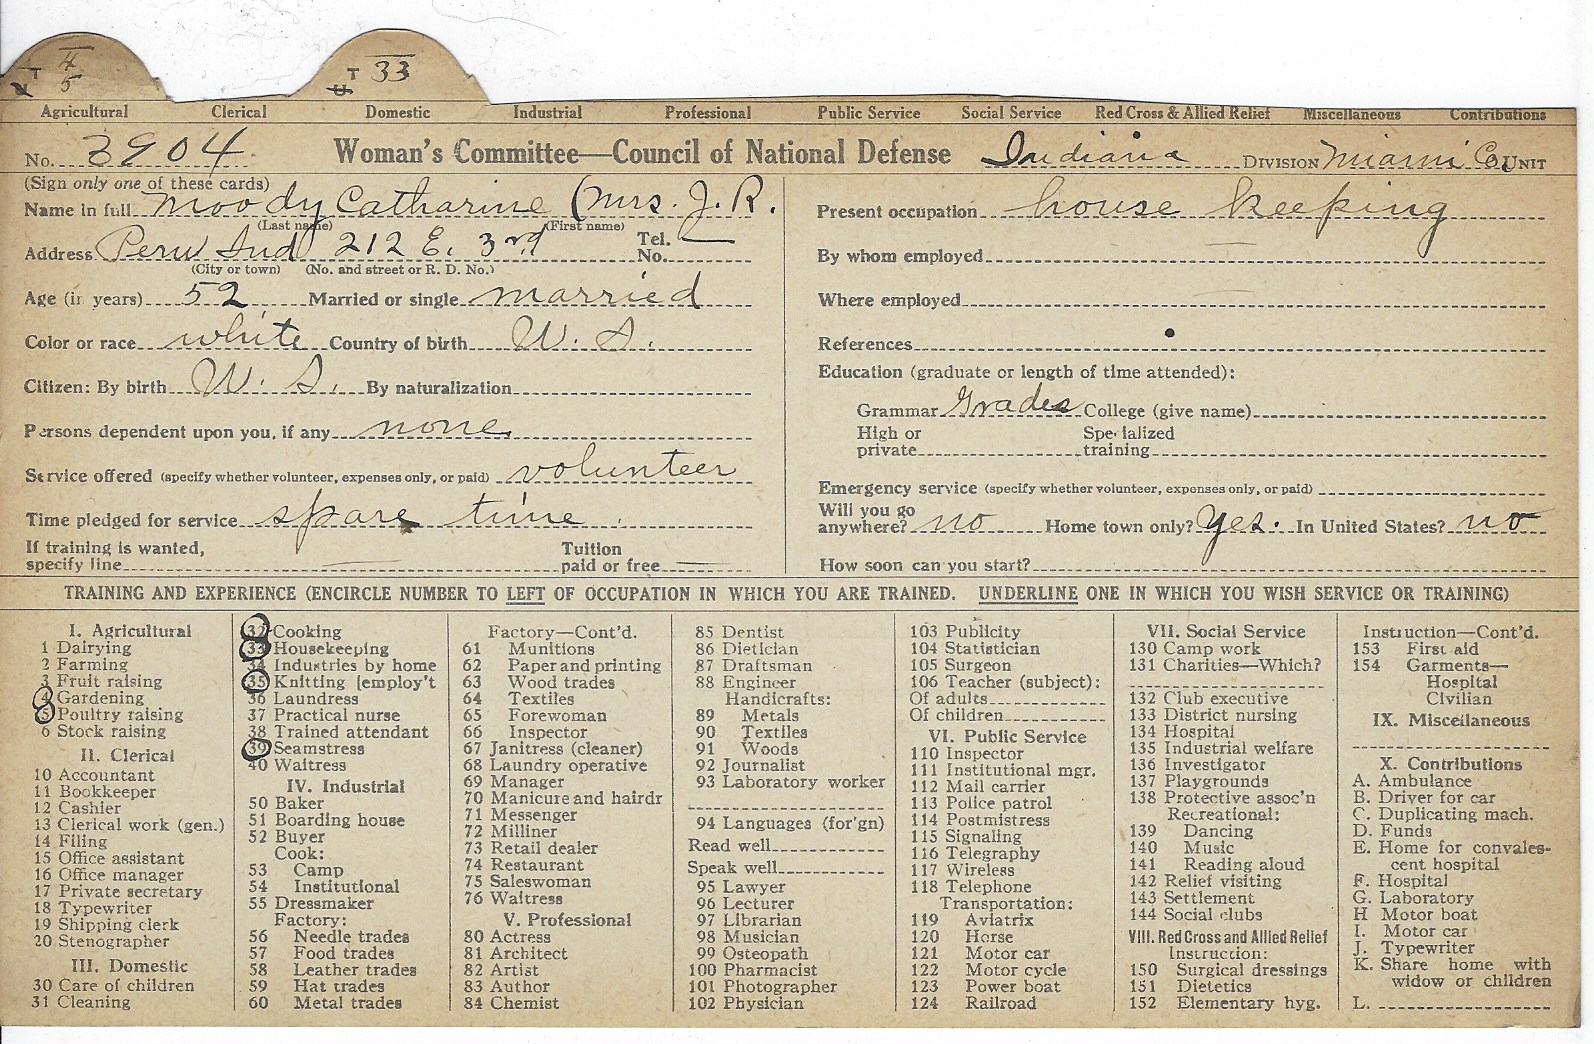 T 4 5
T U 33
Agricultural Clerical Domestic Industrial Professional Public Service Social Service Red Cross & Allied Relief Miscellaneous Contributions
No. 3904 Woman's Committee—Council of National Defense Indiana DIVISION Miami Co. UNIT
(Sign only one of these cards)
Name in full Moody Catharine (Mrs. J. R.
(Last name) (First name)
Address Peru Ind 212 E. 3rd Tel. No. —
(City or town) (No. and street or R. D. No.)
Age (in years) 52 Married or single married
Color or race white Country of birth U. S.
Citizen: By birth U. S. By naturalization
Persons dependent upon you, if any none
Service offered (specify whether volunteer, expenses only, or paid) volunteer
Time pledged for service spare time.
If training is wanted, specify line — Tuition paid or free —
Present occupation house keeping
By whom employed —
Where employed —
References
Education (graduate or length of time attended):
Grammar Grades College (give name)
High or private Specialized training
Emergency service (specify whether volunteer, expenses only, or paid)
Will you go anywhere? no Home town only? Yes. In United States? no
How soon can you start?
TRAINING AND EXPERIENCE (ENCIRCLE NUMBER TO LEFT OF OCCUPATION IN WHICH YOU ARE TRAINED. UNDERLINE ONE IN WHICH YOU WISH SERVICE OR TRAINING)
I. Agricultural
1 Dairying
2 Farming
3 Fruit raising
4 Gardening
5 Poultry raising
6 Stock raising
II. Clerical
10 Accountant
11 Bookkeeper
12 Cashier
13 Clerical work (gen.)
14 Filing
15 Office assistant
16 Office manager
17 Private secretary
18 Typewriter
19 Shipping clerk
20 Stenographer
III. Domestic
30 Care of children
31 Cleaning
32 Cooking
33 Housekeeping
34 Industries by home
35 Knitting [employ't
36 Laundress
37 Practical nurse
38 Trained attendant
39 Seamstress
40 Waitress
IV. Industrial
50 Baker
51 Boarding house
52 Buyer
Cook:
53 Camp
54 Institutional
55 Dressmaker
Factory:
56 Needle trades
57 Food trades
58 Leather trades
59 Hat trades
60 Metal trades
Factory—Cont'd.
61 Munitions
62 Paper and printing
63 Wood trades
64 Textiles
65 Forewoman
66 Inspector
67 Janitress (cleaner)
68 Laundry operative
69 Manager
70 Manicure and hairdr
71 Messenger
72 Milliner
73 Retail dealer
74 Restaurant
75 Saleswoman
76 Waitress
V. Professional
80 Actress
81 Architect
82 Artist
83 Author
84 Chemist
85 Dentist
86 Dietician
87 Draftsman
88 Engineer
Handicrafts:
89 Metals
90 Textiles
91 Woods
92 Journalist
93 Laboratory worker
94 Languages (for'gn)
Read well
Speak well
95 Lawyer
96 Lecturer
97 Librarian
98 Musician
99 Osteopath
100 Pharmacist
101 Photographer
102 Physician
103 Publicity
104 Statistician
105 Surgeon
106 Teacher (subject):
Of adults
Of children
VI. Public Service
110 Inspector
111 Institutional mgr.
112 Mail carrier
113 Police patrol
114 Postmistress
115 Signaling
116 Telegraphy
117 Wireless
118 Telephone
Transportation:
119 Aviatrix
120 Horse
121 Motor car
122 Motor cycle
123 Power boat
124 Railroad
VII. Social Service
130 Camp work
131 Charities—Which?
132 Club executive
133 District nursing
134 Hospital
135 Industrial welfare
136 Investigator
137 Playgrounds
138 Protective assoc'n
Recreational:
139 Dancing
140 Music
141 Reading aloud
142 Relief visiting
143 Settlement
144 Social clubs
VIII. Red Cross and Allied Relief
Instruction:
150 Surgical dressings
151 Dietetics
152 Elementary hyg.
Instruction—Cont'd.
153 First aid
154 Garments—
Hospital
Civilian
IX. Miscellaneous
X. Contributions
A. Ambulance
B. Driver for car
C. Duplicating mach.
D. Funds
E. Home for convales-
cent hospital
F. Hospital
G. Laboratory
H Motor boat
I. Motor car
J. Typewriter
K. Share home with
widow or children
L.